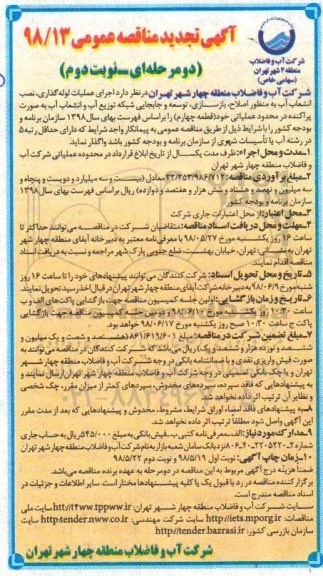 شرکت آب و فاضلاب
منطقه ۴ شهر تهران
(سهامی خاص)
آگهی تجدید مناقصه عمومی ۹۸/۱۳
(دو مرحله‌ای_نوبت دوم)
شرکت آب و فاضلاب منطقه چهار شهر تهران در نظر دارد اجرای عملیات لوله گذاری، نصب
انشعاب آب به منظور اصلاح، بازسازی، توسعه و جابجایی شبکه توزیع آب و انشعاب آب به صورت
پراکنده در محدود عملیاتی خود (قطعه چهارم) را براساس فهرست بهای سال ۱۳۹۸ سازمان برنامه و
بودجه کشور را با شرایط ذیل از طریق مناقصه عمومی به پیمانکار واجد شرایط که دارای حداقل رتبه ۵
در رشته آب یا تأسیسات شهری از سازمان برنامه و بودجه کشور باشد واگذار نماید.
۱_مدت و محل اجرا: ظرف مدت یکسال از تاریخ ابلاغ قرارداد در محدوده عملیاتی شرکت آب
و فاضلاب منطقه چهار شهر تهران
۲_مبلغ برآوردی مناقصه: ۲۳/۲۵۳/۹۸۶/۷۱۲ معادل (بیست و سه میلیارد و دویست و پنجاه و
سه میلیون و نهصد و هشتاد و شش هزار و هفتصد و دوازده) ریال براساس فهرست بهای سال ۱۳۹۸
سازمان برنامه و بودجه کشور
۳_محل اعتبار: از محل اعتبارات جاری شرکت
۴_مهلت و محل دریافت اسناد مناقصه: متقاضیان شرکت در مناقصه می توانند حداکثر تا
ساعت ۱۶ روز یکشنبه مورخ ۹۸/۰۵/۲۷ با معرفی نامه معتبر به دبیرخانه آبفای منطقه چهار شهر
تهران به نشانی: تهران، خیابان بهشتی، ضلع جنوبی پارک شهر مراجعه و نسبت به دریافت اسناد
مناقصه اقدام نمایند.
۵_تاریخ و محل تحویل اسناد: شرکت کنندگان می توانند پیشنهادهای خود را تا ساعت ۱۶ روز
شنبه مورخ ۹۸/۰۶/۹ به دبیرخانه شرکت آبفای منطقه چهار شهر تهران در قبال اخذ رسید تحویل نمایند.
۶_تاریخ و زمان بازگشایی: اولین جلسه کمیسیون مناقصه جهت بازگشایی پاکت های الف و ب
ساعت ۱۰:۳۰ روز یکشنبه مورخ ۹۸/۰۶/۱۰ و دومین جلسه کمیسیون مناقصه جهت بازگشایی
پاکت ج ساعت ۱۰:۳۰ صبح روز یکشنبه مورخ ۹۸/۰۶/۱۷ خواهد بود.
۷_مبلغ تضمین شرکت در مناقصه: مبلغ ۸۶۱/۶۱۹/۶۰۱ (هشتصد و شصت و یک میلیون و
ششصد و نوزده هزار و ششصد و یک) ریال می باشد که شرکت کنندگان در مناقصه می توانند به
صورت فیش واریزی نقدی و یا ضمانتنامه بانکی در وجه شرکت آب و فاضلاب منطقه چهار شهر
تهران و یا چک بانکی تضمینی در وجه شرکت آب و فاضلاب منطقه چهار شهر تهران ارسال نمایند و
به پیشنهادهایی که فاقد سپرده، سپرده های مخدوش، سپرده های کمتر از میزان مقرر، چک شخصی
و نظایر آن ترتیب اثر داده نخواهد شد.
۸_به پیشنهادهای فاقد امضاء اوراق شرایط، مشروط، مخدوش و پیشنهادهایی که بعد از مدت مقرر
این آگهی واصل شود مطلقاً ترتیب اثر داده نخواهد شد.
۹_مدارک مورد نیاز: الف_معرفی نامه کتبی، ب_فیش بانکی به مبلغ ۵۴۵/۰۰۰ ریال به حساب جاری
نزد بانک سامان شعبه بازار به نام شرکت آب و فاضلاب منطقه چهار شهر تهران
۱۰_زمان چاپ آگهی: نوبت اول ۹۸/۵/۱۹ و نوبت دوم ۹۸/۵/۲۲
ضمناً هزینه درج آگهی مربوط به این مناقصه در دو مرحله به عهده برنده مناقصه می باشد.
برگزار کننده مناقصه در رد یا قبول یک یا کلیه پیشنهادها مختار است. سایر اطلاعات و جزئیات در
اسناد مناقصه مندرج است.
سایت شرکت آب و فاضلاب منطقه چهار شهر تهران: htt//t4ww.tppww.ir سایت ملی
مناقصات: http://iets.mporg.ir سایت شرکت مهندسی: http:tender.nww.co.ir سایت
سازمان بازرسی کشور: http://tender.bazrasi.ir
شرکت آب و فاضلاب منطقه چهار شهر تهران